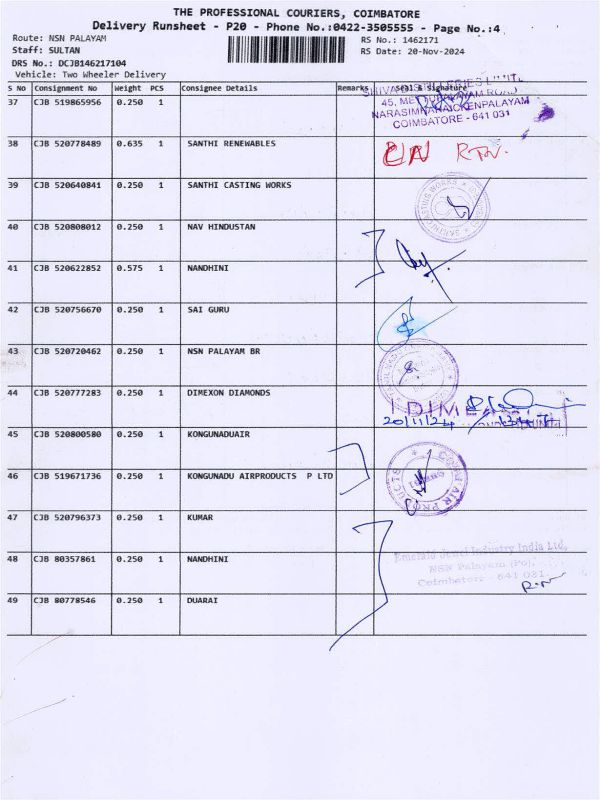 THE PROFESSIONAL COURIERS, COIMBATORE
Delivery Runsheet - P20 - Phone No.:0422-3505555 - Page No.:4
Route: NSN PALAYAM
RS No.: 1462171
Staff: SULTAN
RS Date: 20-Nov-2024
DRS No.: DCJB146217104
Vehicle: Two Wheeler Delivery
S No Consignment No Weight PCS Consignee Details Remarks Seal & Signature
37 CJB 519865956 0.250 1
45, METTUPALAYAM ROAD
NARASIMHANAICKENPALAYAM
COIMBATORE - 641 031
38 CJB 520778489 0.635 1 SANTHI RENEWABLES
39 CJB 520640841 0.250 1 SANTHI CASTING WORKS
40 CJB 520808012 0.250 1 NAV HINDUSTAN
41 CJB 520622852 0.575 1 NANDHINI
42 CJB 520756670 0.250 1 SAI GURU
43 CJB 520720462 0.250 1 NSN PALAYAM BR
44 CJB 520777283 0.250 1 DIMEXON DIAMONDS
20/11/24
45 CJB 520800580 0.250 1 KONGUNADUAIR
46 CJB 519671736 0.250 1 KONGUNADU AIRPRODUCTS P LTD
47 CJB 520796373 0.250 1 KUMAR
48 CJB 80357861 0.250 1 NANDHINI
Emerald Jewel Industry India Ltd,
NSN Palayam (Po),
Coimbatore - 641 031.
49 CJB 80778546 0.250 1 DUARAI